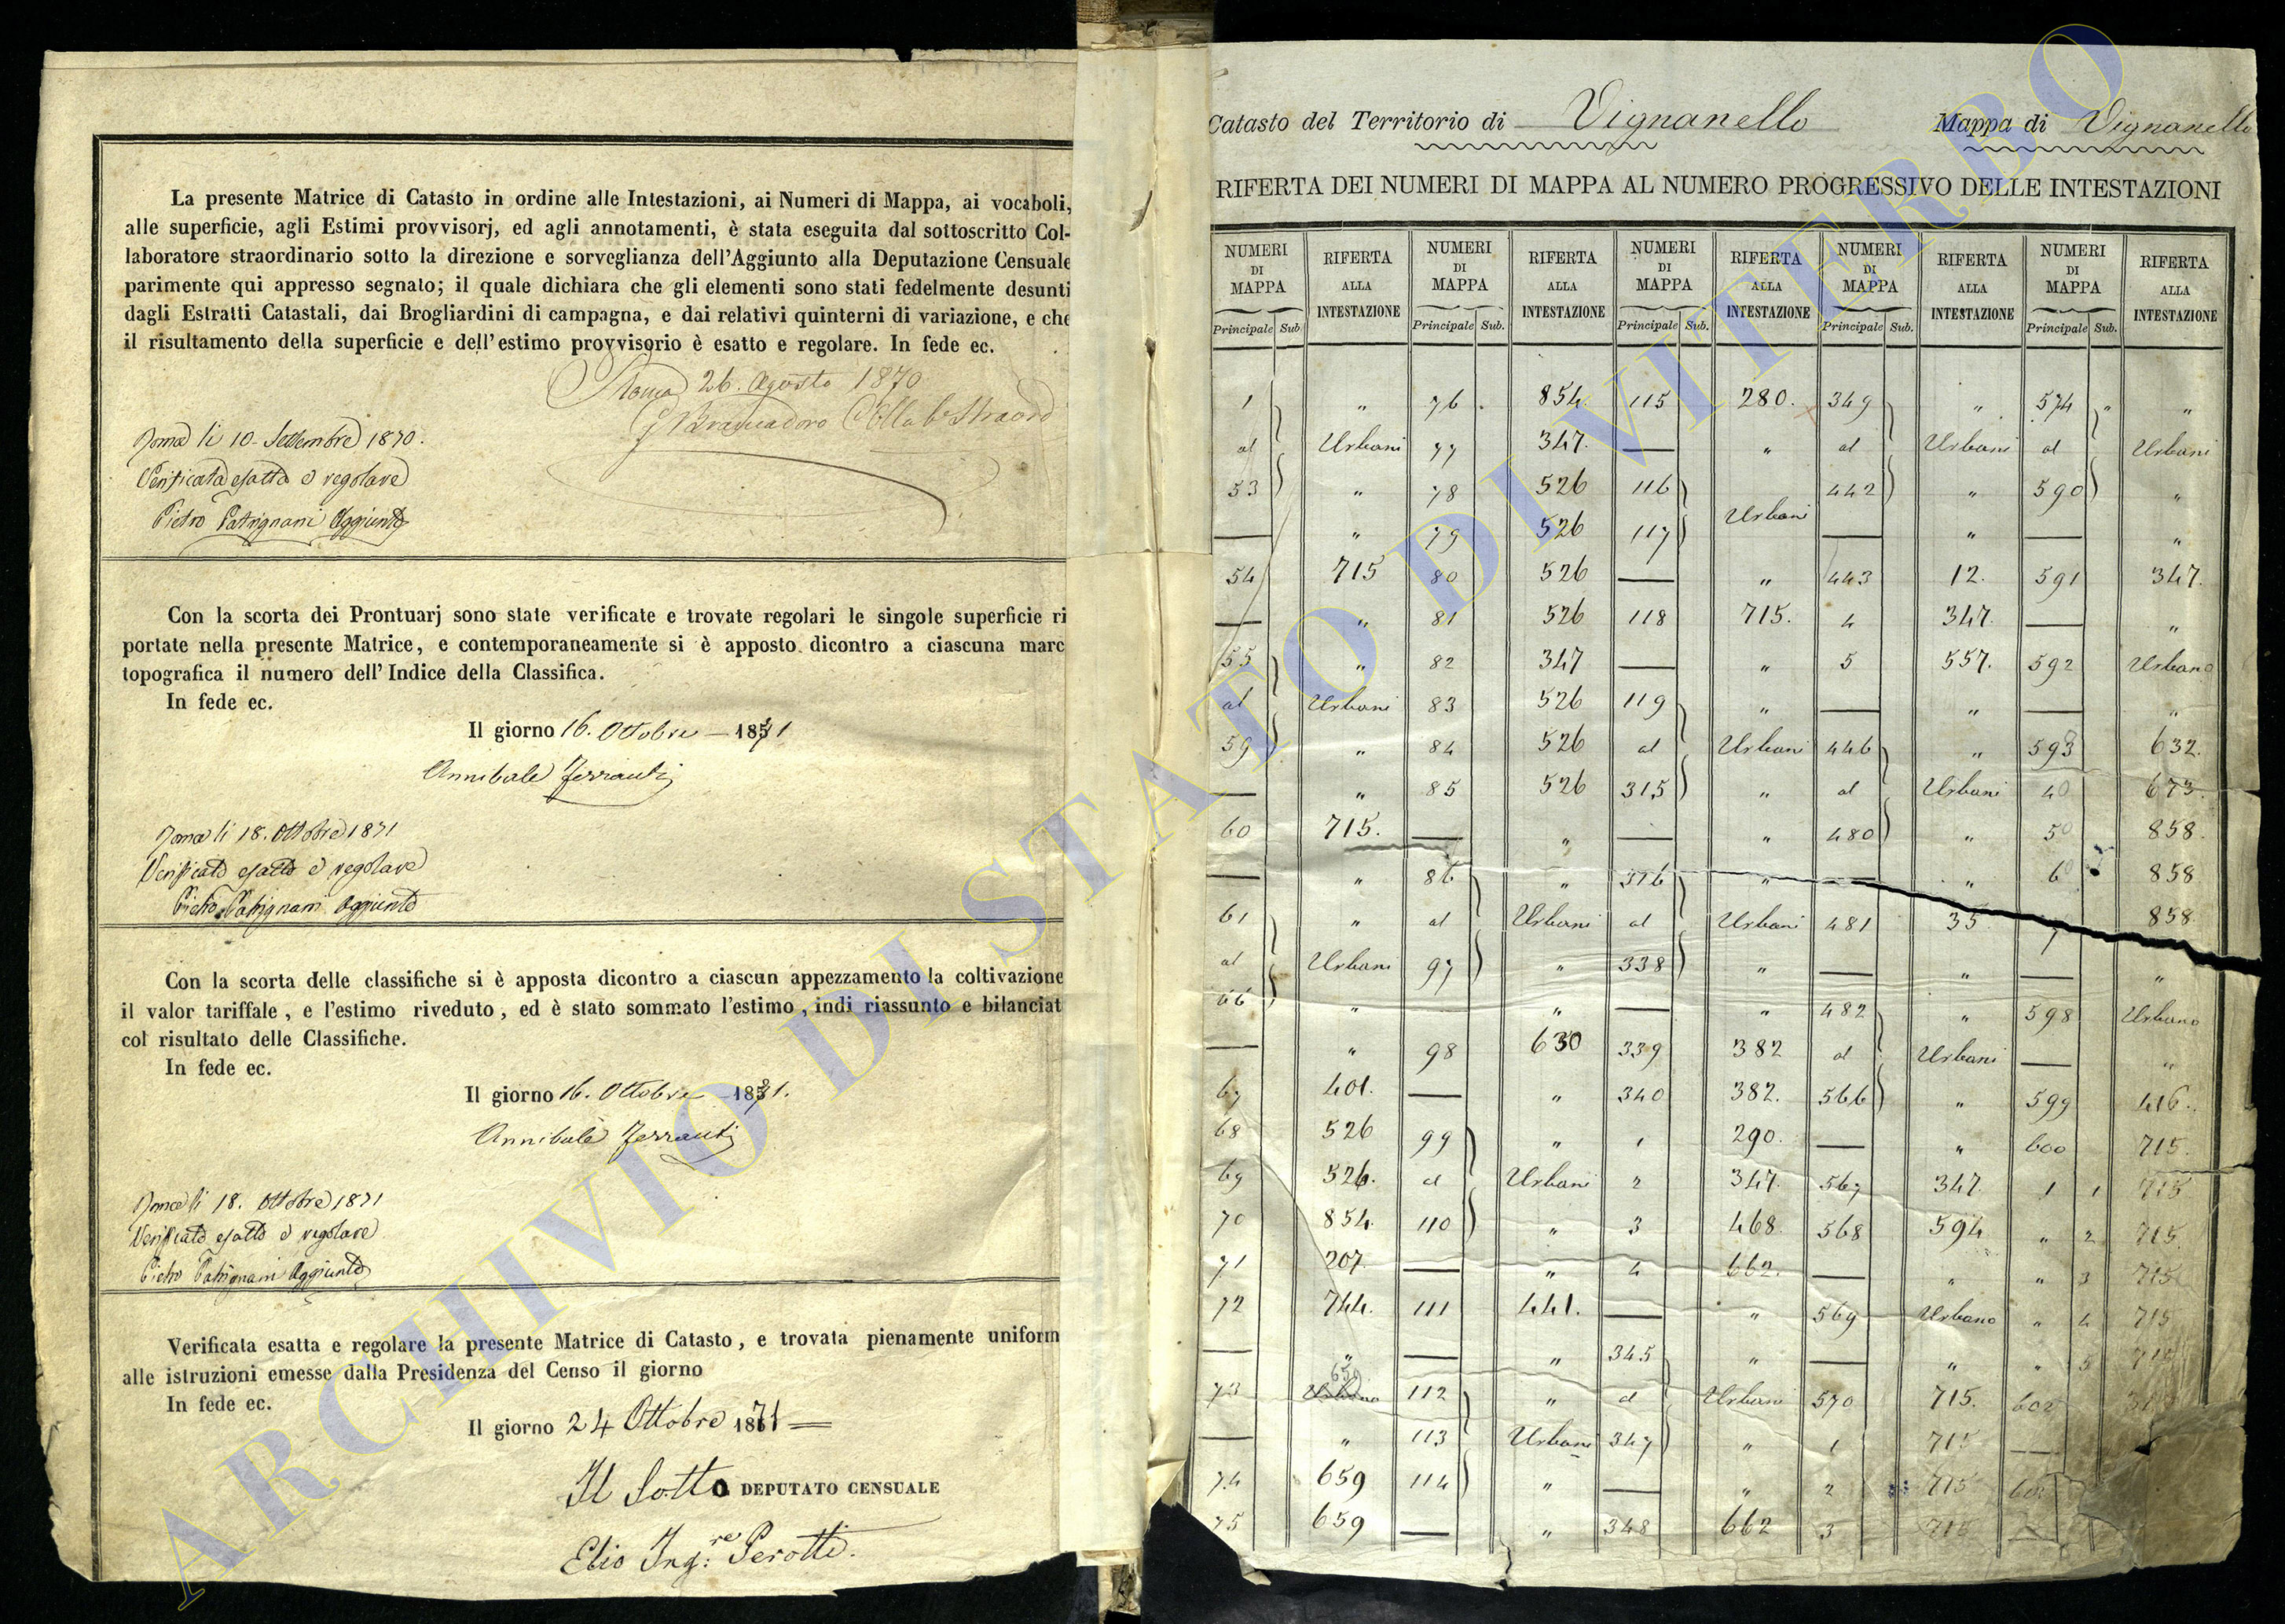 La presente Matrice di Catasto in ordine alle Intestazioni, ai Numeri di Mappa, ai vocaboli,
alle superficie, agli Estimi provvisorj, ed agli annotamenti, è stata eseguita dal sottoscritto Col-
laboratore straordinario sotto la direzione e sorveglianza dell'Aggiunto alla Deputazione Censuale
parimente qui appresso segnato; il quale dichiara che gli elementi sono stati fedelmente desunti
dagli Estratti Catastali, dai Brogliardini di campagna, e dai relativi quinterni di variazione, e che
il risultamento della superficie e dell'estimo provvisorio è esatto e regolare. In fede ec.
Roma 26. Agosto 1870
Roma li 10. Settembre 1870.
Verificata esatta e regolare
Pietro Patrignani Aggiunto
Con la scorta dei Prontuarj sono state verificate e trovate regolari le singole superficie ri
portate nella presente Matrice, e contemporaneamente si è apposto dicontro a ciascuna marc
topografica il numero dell'Indice della Classifica.
In fede ec.
Il giorno 16. Ottobre 1871
Annibale Ferranti
Roma li 18. Ottobre 1871
Verificato esatto e regolare
Pietro Patrignani Aggiunto
Con la scorta delle classifiche si è apposta dicontro a ciascun appezzamento la coltivazione
il valor tariffale, e l'estimo riveduto, ed è stato sommato l'estimo, indi riassunto e bilanciat
col risultato delle Classifiche.
In fede ec.
Il giorno 16. Ottobre 1871.
Annibale Ferranti
Roma li 18. Ottobre 1871
Verificato esatto e regolare
Pietro Patrignani Aggiunto
Verificata esatta e regolare la presente Matrice di Catasto, e trovata pienamente uniform
alle istruzioni emesse dalla Presidenza del Censo il giorno
In fede ec.
Il giorno 24 Ottobre 1871
Il Sotto DEPUTATO CENSUALE
Elio Ing:re Perotti.
Catasto del Territorio di Vignanello Mappa di Vignanello
RIFERTA DEI NUMERI DI MAPPA AL NUMERO PROGRESSIVO DELLE INTESTAZIONI
NUMERI DI MAPPA RIFERTA ALLA INTESTAZIONE NUMERI DI MAPPA RIFERTA ALLA INTESTAZIONE NUMERI DI MAPPA RIFERTA ALLA INTESTAZIONE NUMERI DI MAPPA RIFERTA ALLA INTESTAZIONE NUMERI DI MAPPA RIFERTA ALLA INTESTAZIONE
Principale Sub. Principale Sub. Principale Sub. Principale Sub. Principale Sub.
1 " 76 854. 115 280. 349 " 574 " "
al Urbani 77 347. — " al Urbani al Urbani
53 " 78 526 116 442 " 590 "
— " 79 526 117 Urbani — " — "
54 715 80 526 — " 443 12. 591 347.
— " 81 526 118 715. 4 347. — "
55 " 82 347 — " 5 557. 592 Urbano
al Urbani 83 526 119 " — " — "
59 " 84 526 al Urbani 446 " 593 632.
— " 85 526 315 " al Urbani 40 673.
60 715. — " — " 480 " 50 858.
— " 86 " 316 " — " 60 858
61 " al Urbani al Urbani 481 35 858.
al Urbani 97 " 338 " — " — "
66 " — " — " 482 " 598 Urbano
— " 98 630 339 382 al Urbani — "
67 401. — " 340 382. 566 " 599 416.
68 526 99 " 1 290. — " 600 715.
69 526. al Urbani 2 347. 567 347. 1 1 715
70 854. 110 " 3 468. 568 594. " 2 715.
71 207. — " 4 662. — " " 3 715
72 744. 111 441. — " 569 Urbano " 4 715
— " — " 345 " — " " 5
73 659 112 " al Urbani 570 715. 602
— " 113 Urbani 347 " 1 715 —
74 659 114 " — " 2 715
75 659 — " 348 662 3 715 —
ARCHIVIO DI STATO DI VITERBO